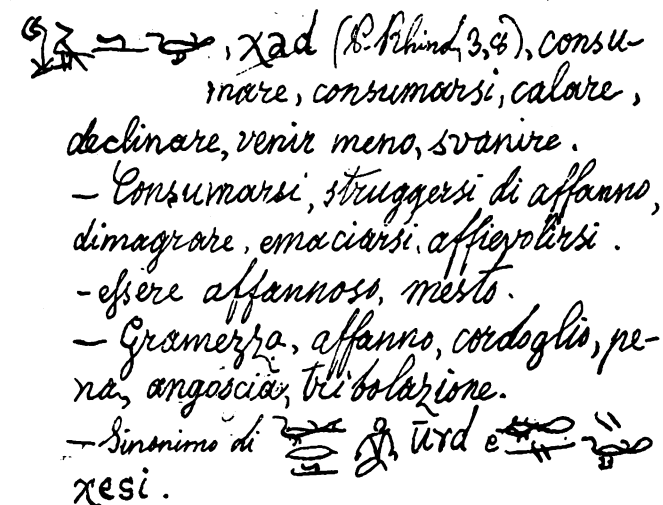 , χad (P. Rhind, 3,8), consu-
mare, consumarsi, calare,
declinare, venir meno, svanire.
– Consumarsi, struggersi di affanno,
dimagrare, emaciarsi, affievolirsi.
– essere affannoso, mesto.
– Gramezza, affanno, cordoglio, pe-
na, angoscia, tribolazione.
– Sinonimo di ūrd e
χesi.